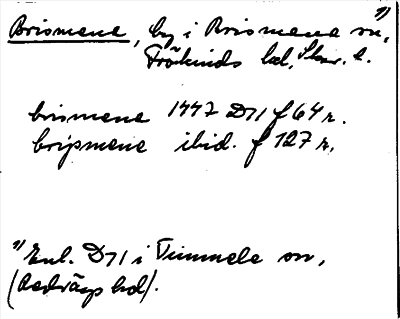 Brismene, by i Brismene sn, 1)
Frökinds hd, Skar. l.
brismene 1447 D71 f 64 r.
bripmene ibid. f 127 r.
1) Enl. D71 i Timmele sn,
(Redvägs hd).